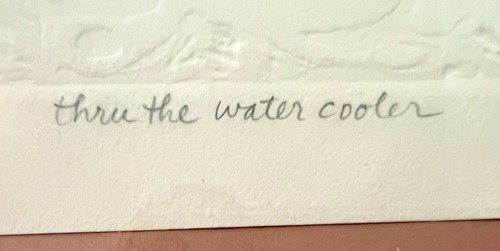 thru the water cooler